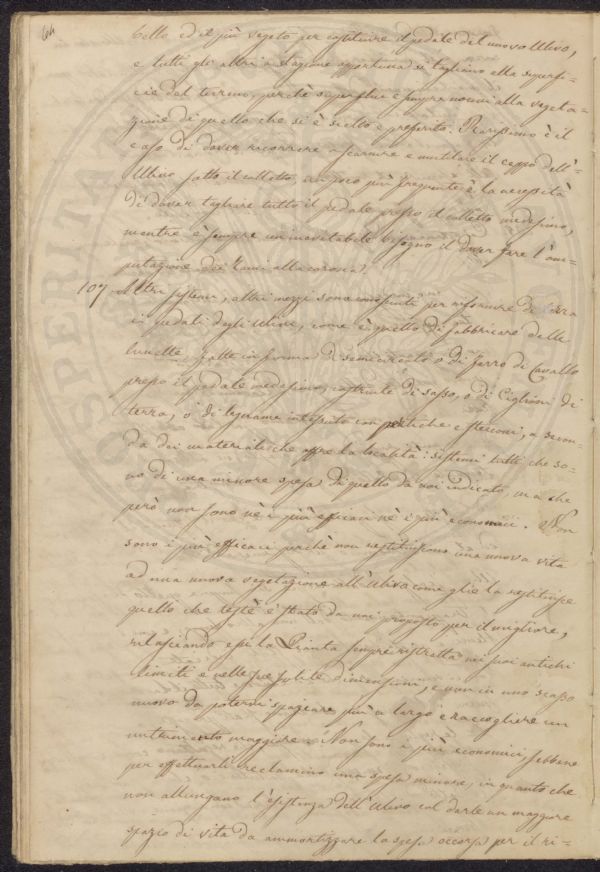 64
bello ed il più vegeto per costituire il pedale del nuovo Ulivo,
e tutti gli altri a stagione opportuna si tagliano alla superfi-
cie del terreno, perchè superflui e sempre nocivi alla vegeta-
zione di quello che si è scelto e preferito. Rarissimo è il
caso di dover ricorrere a scarnire e mutilare il ceppo dell'-
Ulivo sotto il colletto, un poco più frequente è la necessità
di dover tagliare tutto il pedale presso il colletto medesimo,
mentre è sempre un inevitabile bisogno il dover fare l'am-
putazione dei Rami alla corona.
107 Altri sistemi, altri mezzi sono conosciuti per rifornire di terra
i pedali degli Ulivi, come è quello di fabbricare delle
lunette fatte in forma di semicerchio o di ferro di Cavallo
presso il pedale medesimo, costruite di sasso, o di Ciglioni di
terra, o di legname intessuto con pertiche e sterconi, a secon-
da dei materiali che offre la località: sistemi tutti che so-
no di una minore spesa di quello da noi indicato, ma che
però non sono nè i più efficaci nè i più economici. Non
sono i più efficaci perchè non restituiscono una nuova vita
ad una nuova vegetazione all'Ulivo come glie la restituisce
quello che testè è stato da noi proposto per il migliore,
rilasciando essi la Pianta sempre ristretta nei suoi antichi
limiti e nelle sue solite dimensioni, e non in uno scasso
nuovo da potervi spaziare più a largo e raccogliere un
nutrimento maggiore. Non sono i più economici sebbene
per effettuarli reclamino una spesa minore, in quanto che
non allungano l'esistenza dell'Ulivo col darle un maggiore
spazio di vita da ammortizzare la spesa occorsa per il ri-